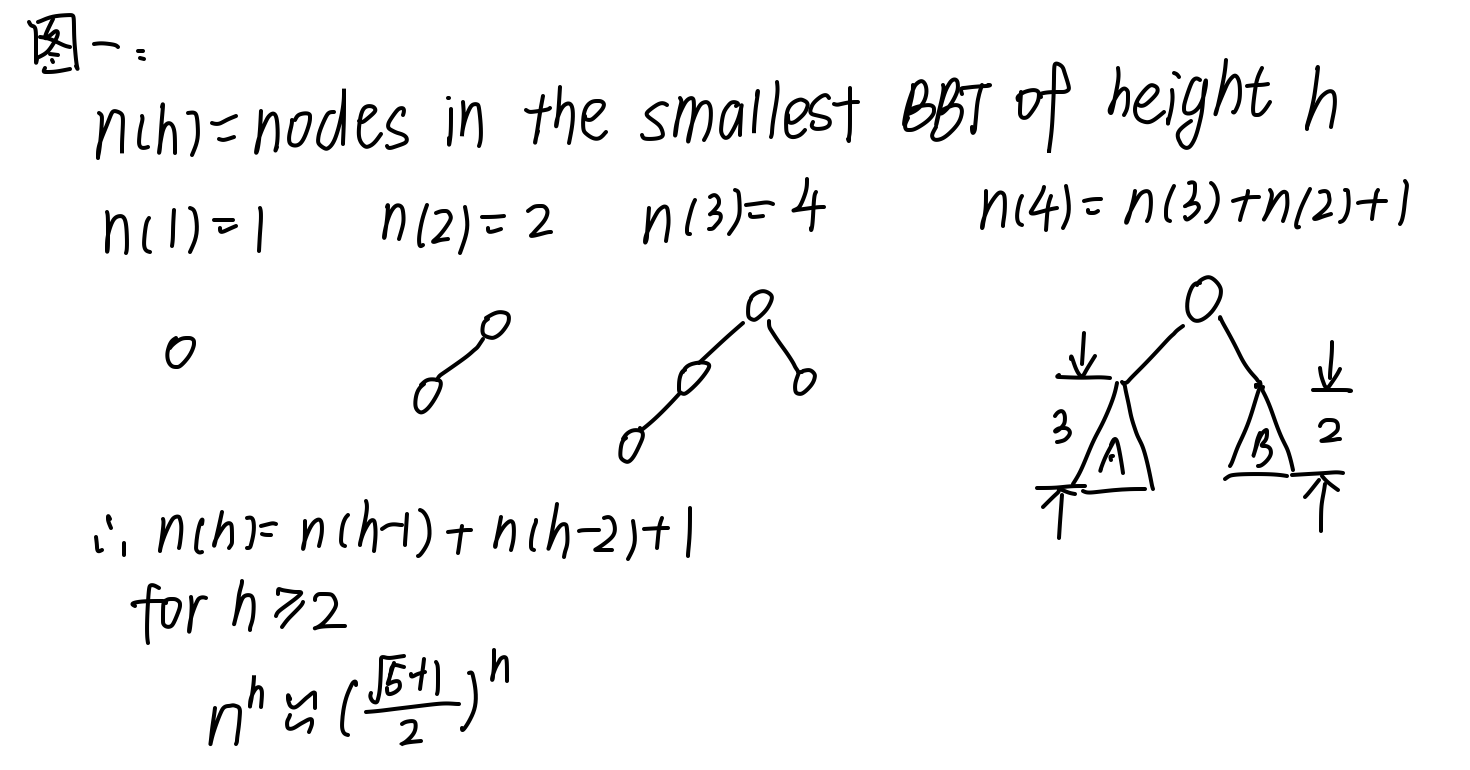 图一:
n(h)=nodes in the smallest BBT of height h
n(1)=1 n(2)=2 n(3)=4 n(4)=n(3)+n(2)+1
3 A B 2
∴ n(h)=n(h-1)+n(h-2)+1
for h⩾2
n^h ≈ ((√5+1)/2)^h